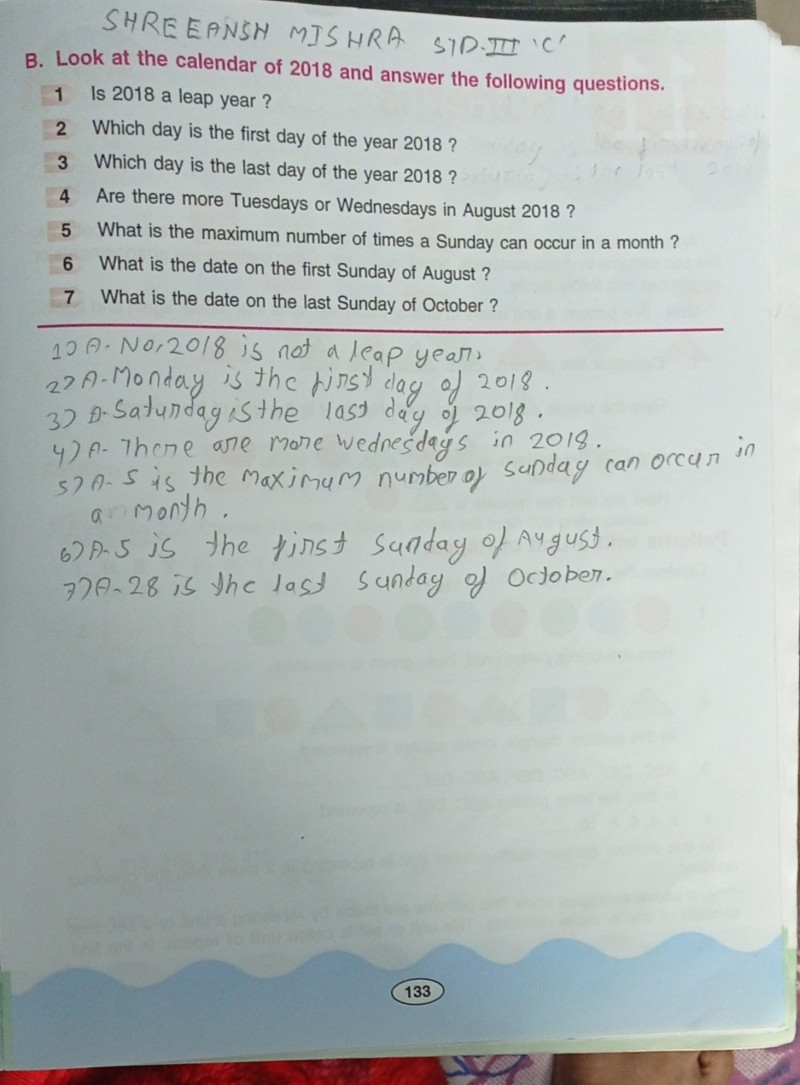 SHREEANSH MISHRA STD.III 'C'
B. Look at the calendar of 2018 and answer the following questions.
1 Is 2018 a leap year ?
2 Which day is the first day of the year 2018 ?
3 Which day is the last day of the year 2018 ?
4 Are there more Tuesdays or Wednesdays in August 2018 ?
5 What is the maximum number of times a Sunday can occur in a month ?
6 What is the date on the first Sunday of August ?
7 What is the date on the last Sunday of October ?
1) A- No, 2018 is not a leap year.
2) A- Monday is the first day of 2018.
3) A- Saturday is the last day of 2018.
4) A- There are more wednesdays in 2018.
5) A- 5 is the maximum number of sunday can occur in
a month.
6) A- 5 is the first Sunday of August.
7) A- 28 is the last Sunday of October.
133